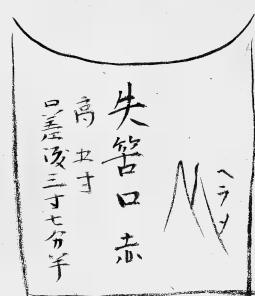 ヘラメ
失筈口赤
高五寸
口差渡三寸七分半